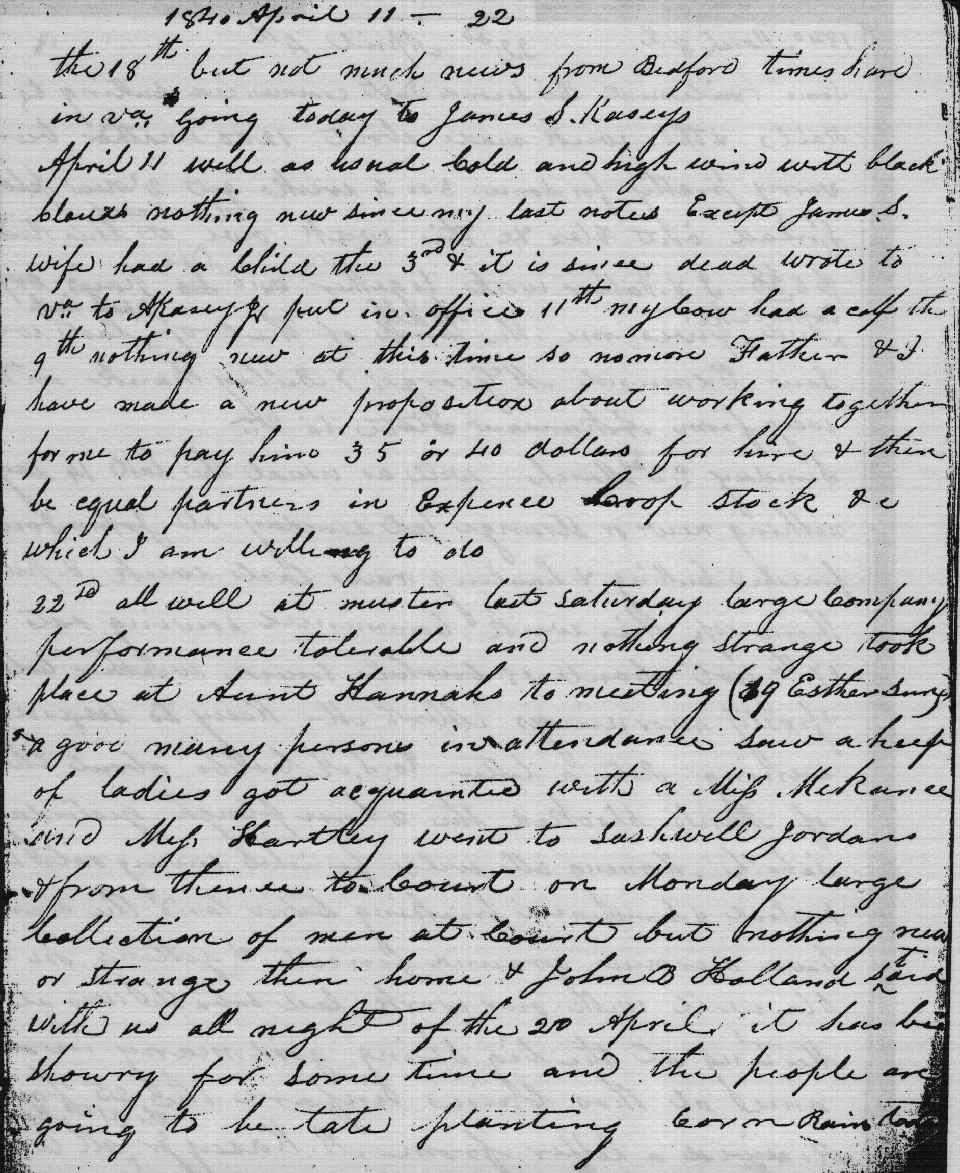 1840 April 11 - 22
the 18th but not much news from Bedford times hard
in va. going today to James S. Kaseys
April 11 well as usual Cold and high wind with black
clouds nothing new since my last notes Except James S.
wife had a Child the 3rd & it is since dead wrote to
va. to AKasey Jr put in office 11th my Cow had a calf th
9th nothing new at this time so nomore Father & I
have made a new proposition about working together
for me to pay him 35 or 40 dollars for hire & then
be equal partners in Expence Croop stock &c
which I am willing to do
22nd all well at muster last saturday large Company
performance tolerable and nothing strange took
place at Aunt Hannahs to meeting (19 Esther sund)
a good many persons in attendance saw a heep
of ladies got acquainted with a Miss Mckanee
and Miss Hartley went to Jordans
& from thence to Court on Monday large
Collection of men at Court but nothing new
or strange then home & John B Holland staid
with us all night of the 20 April it has be
showry for some time and the people are
going to be late planting Corn Rain